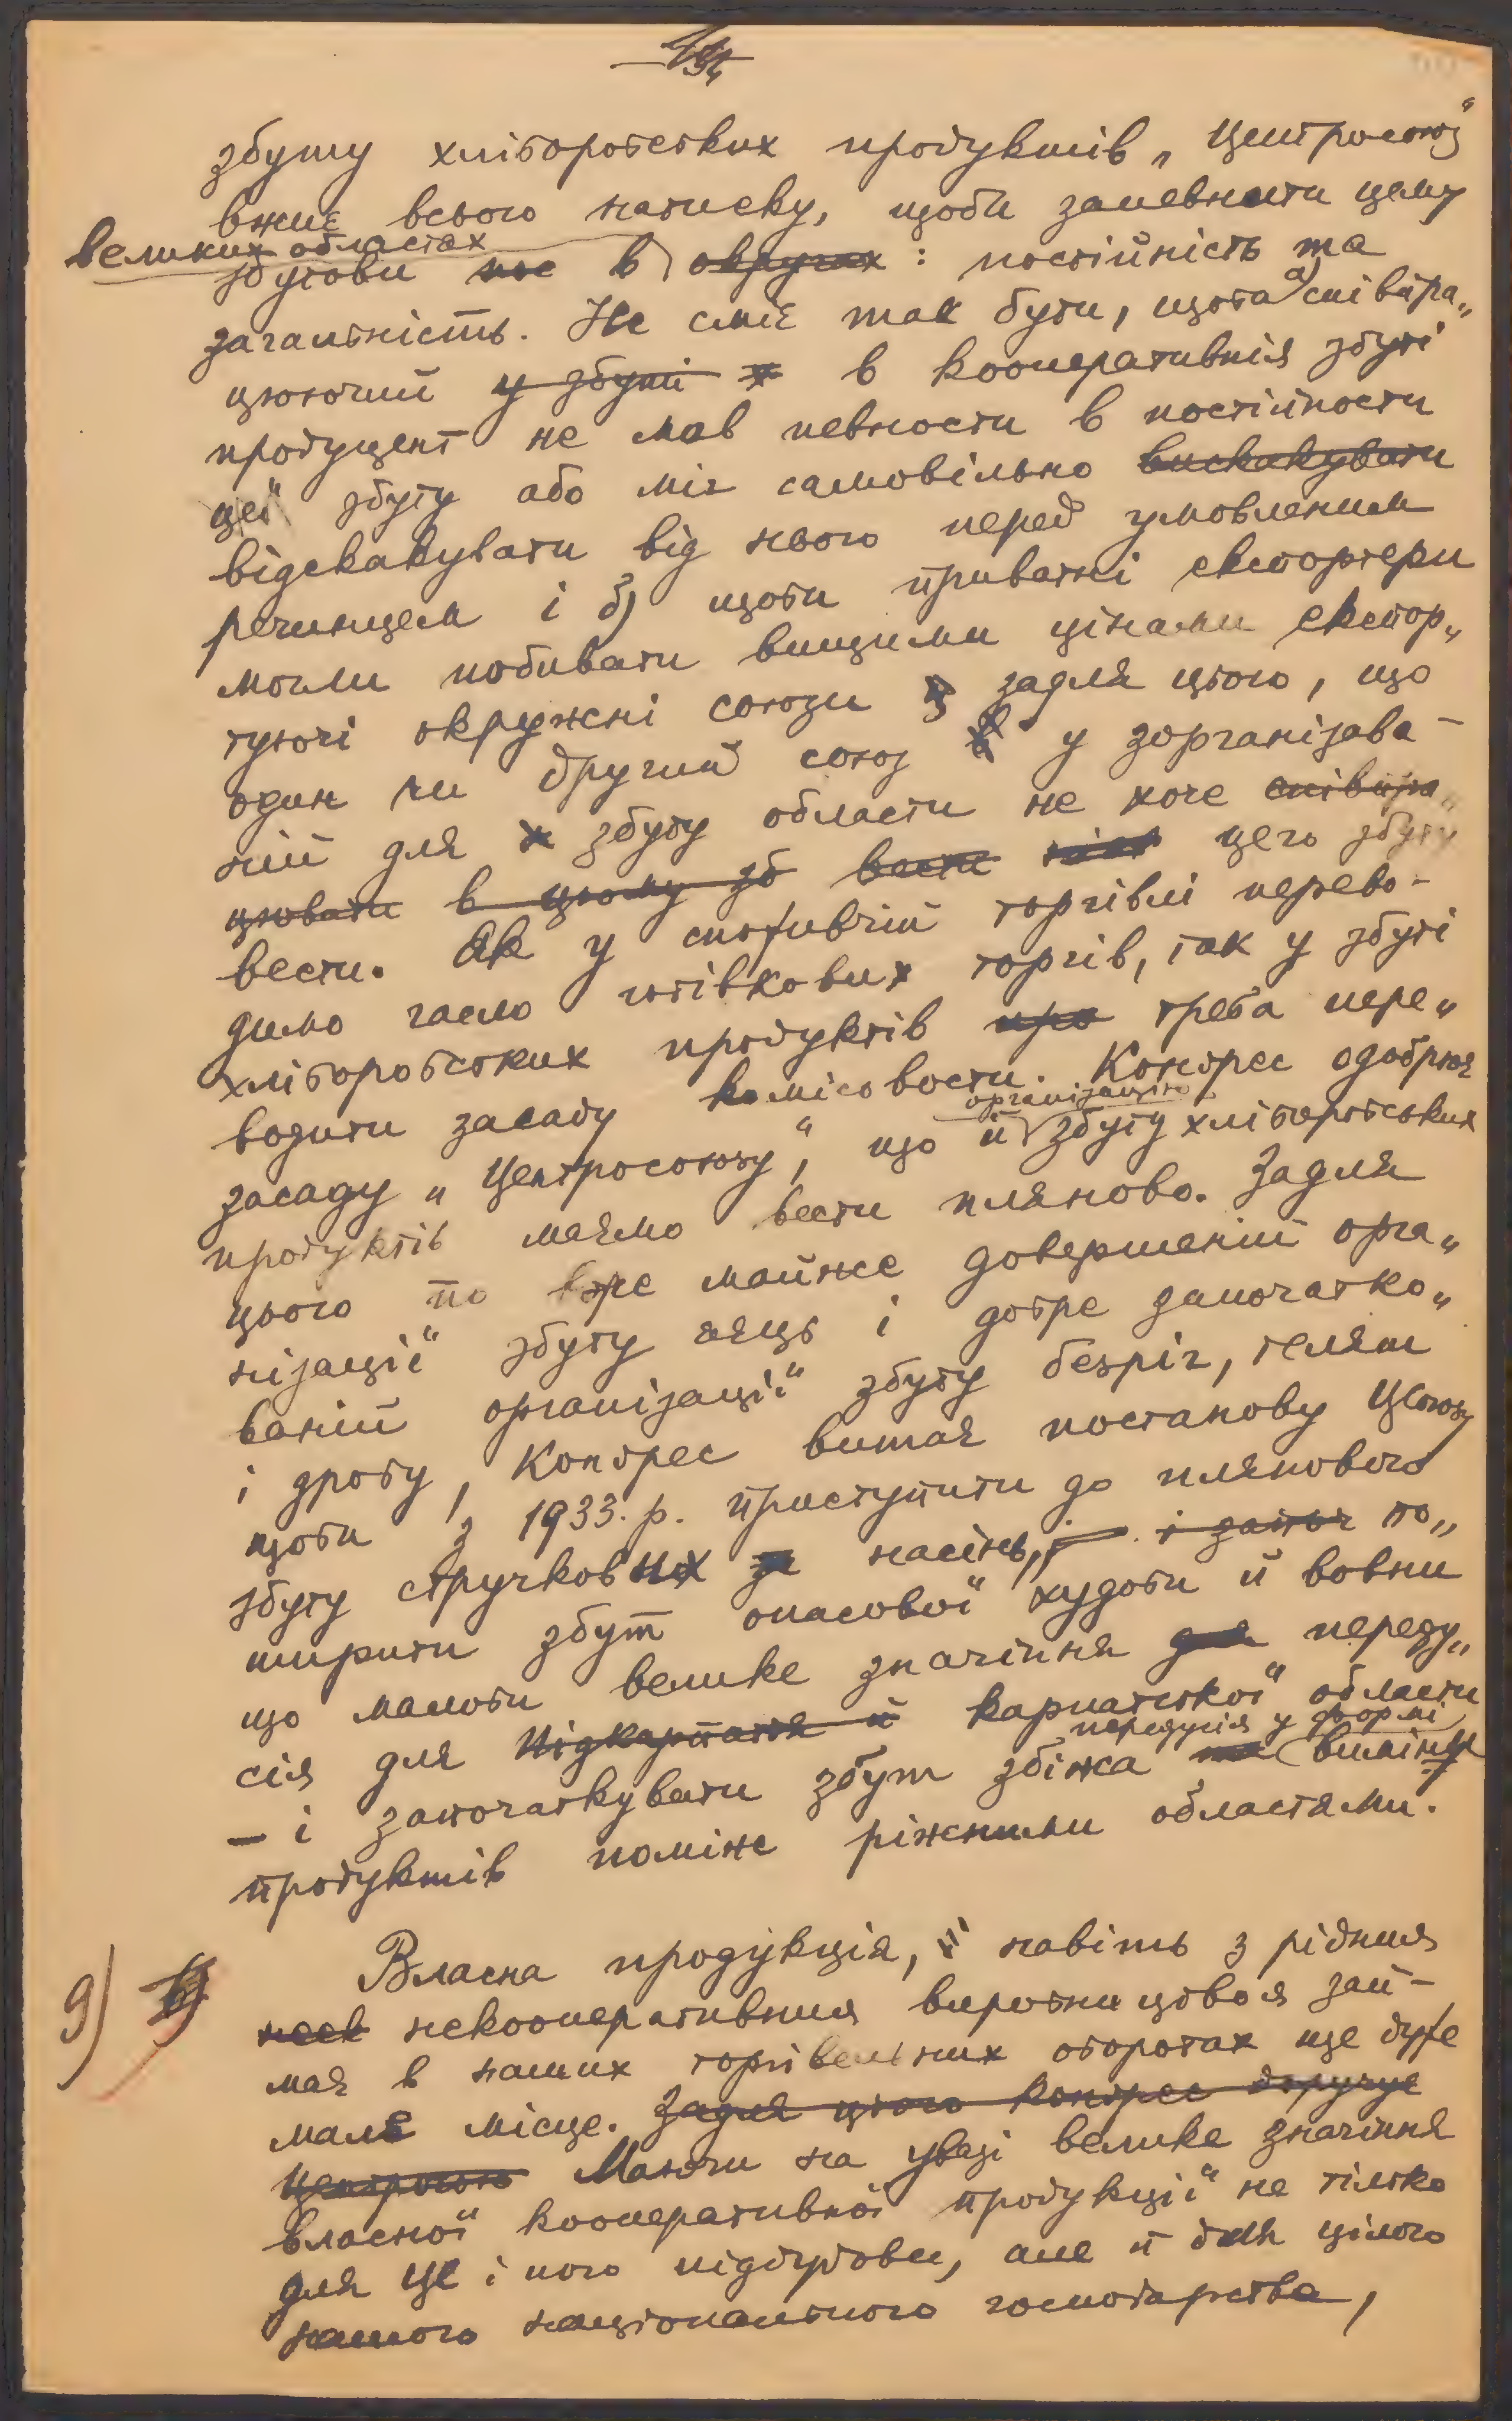 збуту хліборобських продуктів „Центросоюз“
вжиє всього натиску, щоби запевнити цему
великих областах
збутови в : постійність та
загальність. Не сміє так бути, щоби а) співпра„
цюючий в кооперативнім збуті
продуцент не мав певности в постійности
цеї збуту або міг самовільно
відскакувати від нього перед умовленим
речинцем і б) щоби приватні експортери
могли побивати вищими цінами експор„
туючі окружні союзи задля цього, що
один чи другий союз у зорганізова-
ній для збуту области не хоче
цего збуту
вести. Як у споживчій торгівлі перево-
димо гасло готівкових торгів, так у збуті
хліборобських продуктів треба пере„
водити засаду комісовости. Конгрес одобрює
організацію
засаду „Центросоюзу“, що й збуту хліборобських
продуктів маємо вести пляново. Задля
цього по вже майже довершеній орга„
нізації збуту яєць і добре започатко„
ваній організації збуту безріг, телят
і дробу, Конгрес витає постанову ЦСоюзу
щоби з 1933. р. приступити до плянового
збуту стручкових насінь, по„
ширити збут опасової худоби й вовни
що мають велике значіння переду„
сім для карпатської области
передусім у формі
– і започаткувати збут збіжа виміну
продуктів поміж ріжними областями.
9) Власна продукція, навіть з рідним
некооперативним виробництвом зай-
має в наших торгівельних оборотах ще дуже
мале місце.
Маючи на увазі велике значіння
власної кооперативної продукції не тілько
для це і ного підбудови, але й для цілого
нашого національного господарства,